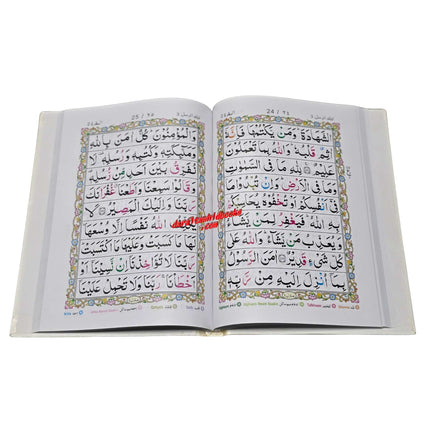 24 / ٢٤
الشَّهَادَةَ وَمَنْ يَّكْتُمْهَا فَاِنَّهٗٓ
اٰثِمٌ قَلْبُهٗ وَاللّٰهُ بِمَا تَعْمَلُوْنَ
عَلِيْمٌ لِلّٰهِ مَا فِى السَّمٰوٰتِ
وَمَا فِى الْاَرْضِ وَاِنْ تُبْدُوْا مَا
فِىْٓ اَنْفُسِكُمْ اَوْ تُخْفُوْهُ يُحَاسِبْكُمْ
بِهِ اللّٰهُ فَيَغْفِرُ لِمَنْ يَّشَآءُ
وَيُعَذِّبُ مَنْ يَّشَآءُ وَاللّٰهُ عَلٰى
كُلِّ شَىْءٍ قَدِيْرٌ اٰمَنَ الرَّسُوْلُ
بِمَآ اُنْزِلَ اِلَيْهِ مِنْ رَّبِّهٖ
25 / ٢٥
وَالْمُؤْمِنُوْنَ كُلٌّ اٰمَنَ بِاللّٰهِ
وَمَلٰٓئِكَتِهٖ وَكُتُبِهٖ وَرُسُلِهٖ لَا
نُفَرِّقُ بَيْنَ اَحَدٍ مِّنْ رُّسُلِهٖ
وَقَالُوْا سَمِعْنَا وَاَطَعْنَا غُفْرَانَكَ
رَبَّنَا وَاِلَيْكَ الْمَصِيْرُ لَا
يُكَلِّفُ اللّٰهُ نَفْسًا اِلَّا وُسْعَهَا
لَهَا مَا كَسَبَتْ وَعَلَيْهَا مَا اكْتَسَبَتْ
رَبَّنَا لَا تُؤَاخِذْنَآ اِنْ نَّسِيْنَآ اَوْ
اَخْطَاْنَا رَبَّنَا وَلَا تَحْمِلْ عَلَيْنَآ